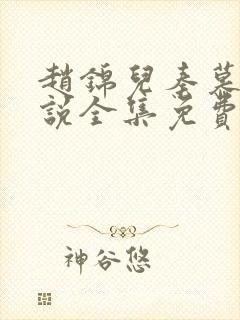 趙錦兒秦慕
說全集免費
神谷悠